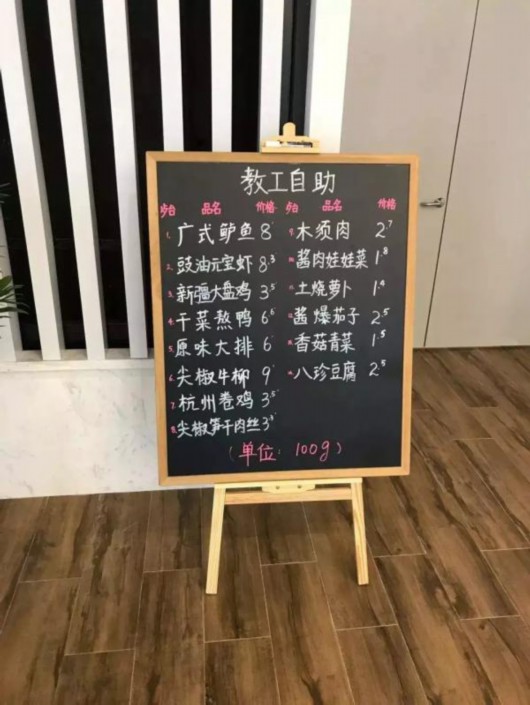 教工自助
品名 价格
品名 价格
1. 广式鲈鱼 8
2. 豉油元宝虾 8.3
3. 新疆大盘鸡 3.5
4. 干菜熬鸭 6.6
5. 原味大排 6
6. 尖椒牛柳 9
7. 杭州卷鸡 3.5
8. 尖椒笋干肉丝 3.3
木须肉 2.7
酱肉娃娃菜 1.8
土烧萝卜 1.4
酱爆茄子 2.5
香菇青菜 1.5
八珍豆腐 2.5
(单位: 100g)